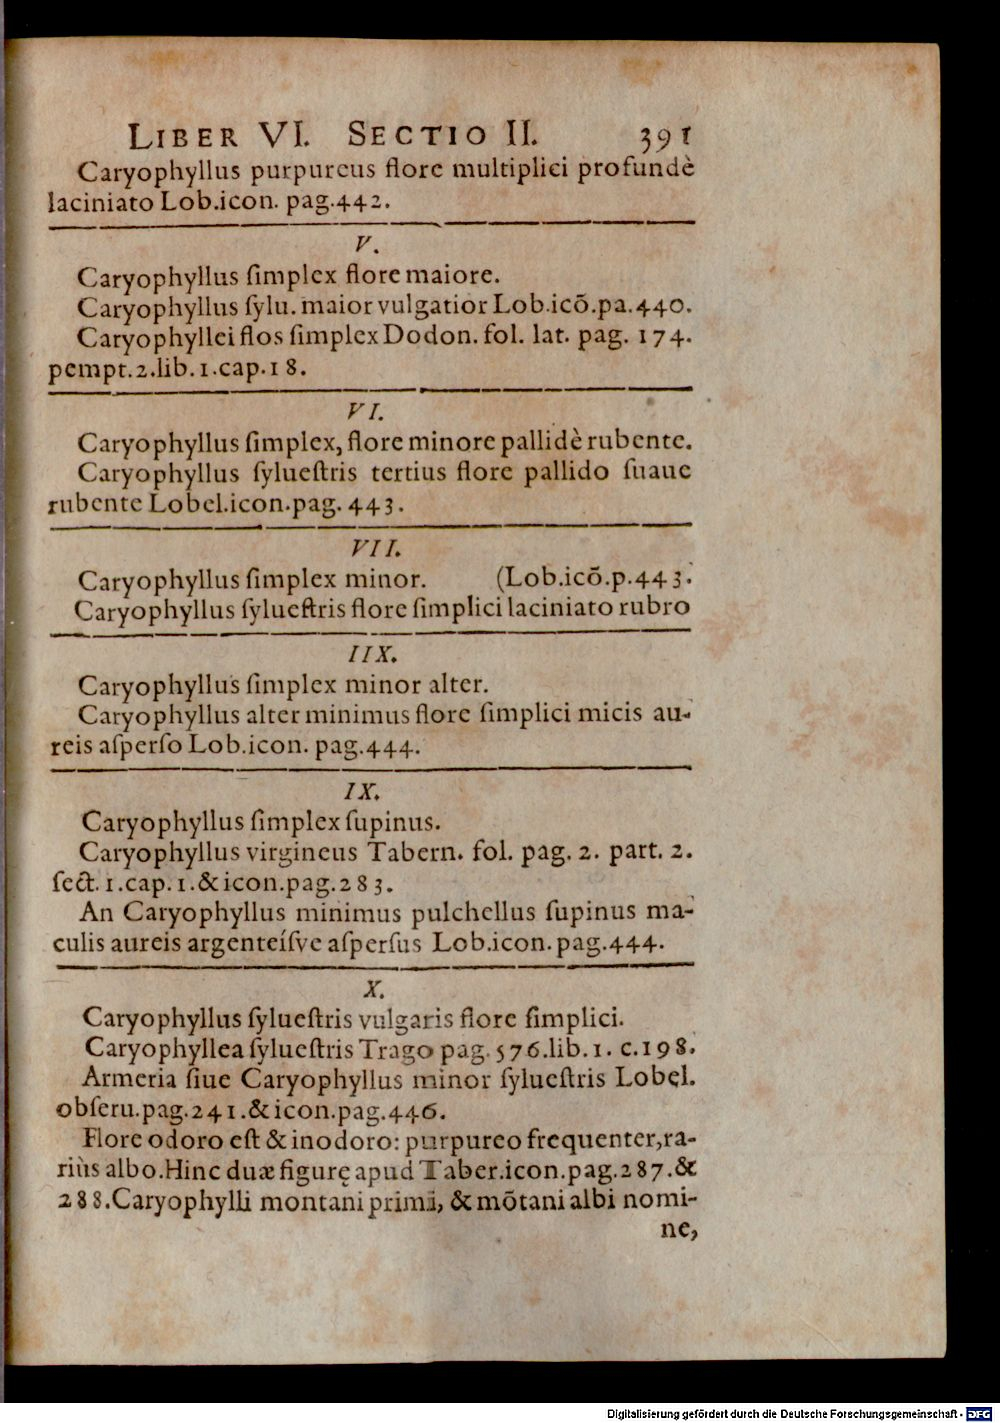 LIBER VI. SECTIO II. 391
Caryophyllus purpureus flore multiplici profundè
laciniato Lob.icon. pag.442.
V.
Caryophyllus ſimplex flore maiore.
Caryophyllus ſylu. maior vulgatior Lob.icõ.pa.440.
Caryophyllei flos ſimplex Dodon. fol. lat. pag. 174.
pempt.2.lib.1.cap.18.
VI.
Caryophyllus ſimplex, flore minore pallidè rubente.
Caryophyllus ſylueſtris tertius flore pallido ſuaue
rubente Lobel.icon.pag. 443.
VII.
Caryophyllus ſimplex minor. (Lob.icõ.p.443.
Caryophyllus ſylueſtris flore ſimplici laciniato rubro
IIX.
Caryophyllus ſimplex minor alter.
Caryophyllus alter minimus flore ſimplici micis au-
reis aſperſo Lob.icon. pag.444.
IX.
Caryophyllus ſimplex ſupinus.
Caryophyllus virgineus Tabern. fol. pag. 2. part. 2.
ſect. 1.cap.1.& icon.pag.283.
An Caryophyllus minimus pulchellus ſupinus ma-
culis aureis argenteíſve aſperſus Lob.icon.pag.444.
X.
Caryophyllus ſylueſtris vulgaris flore ſimplici.
Caryophyllea ſylueſtris Trago pag. 576.lib.1. c.198.
Armeria ſiue Caryophyllus minor ſylueſtris Lobel.
obſeru.pag.241.& icon.pag.446.
Flore odoro eſt & inodoro: purpureo frequenter, ra-
riùs albo.Hinc duæ figurę apud Taber.icon.pag.287.&
288.Caryophylli montani primi, & mõtani albi nomi-
ne,
Digitalisierung gefördert durch die Deutsche Forschungsgemeinschaft - DFG